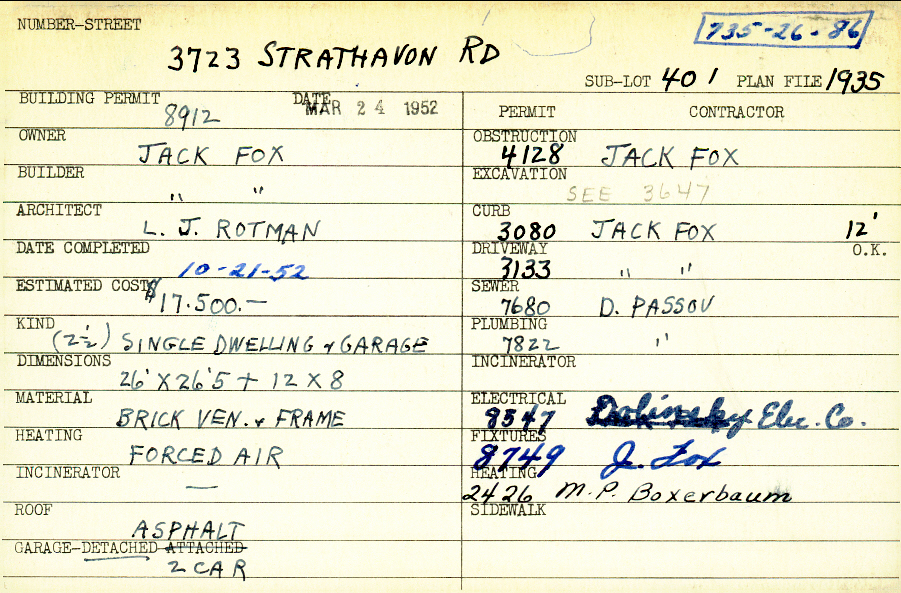 NUMBER-STREET
735-26-86
3723 STRATHAVON RD
SUB-LOT 401 PLAN FILE 1935
BUILDING PERMIT 8912 DATE MAR 24 1952
PERMIT CONTRACTOR
OWNER JACK FOX
OBSTRUCTION 4128 JACK FOX
BUILDER " "
EXCAVATION SEE 3647
ARCHITECT L. J. ROTMAN
CURB 3080 JACK FOX 12'
DATE COMPLETED 10-21-52
DRIVEWAY 3133 " " O.K.
ESTIMATED COST $17.500.—
SEWER 7680 D. PASSOV
KIND (2½) SINGLE DWELLING & GARAGE
PLUMBING 7822 "
DIMENSIONS 26' X 26'5 + 12 X 8
INCINERATOR
MATERIAL BRICK VEN. & FRAME
ELECTRICAL 8547 Dolinsky Elec. Co.
HEATING FORCED AIR
FIXTURES 8749 J. Fox
INCINERATOR —
HEATING 2426 M.P. Boxerbaum
ROOF ASPHALT
SIDEWALK
GARAGE-DETACHED ATTACHED
2 CAR